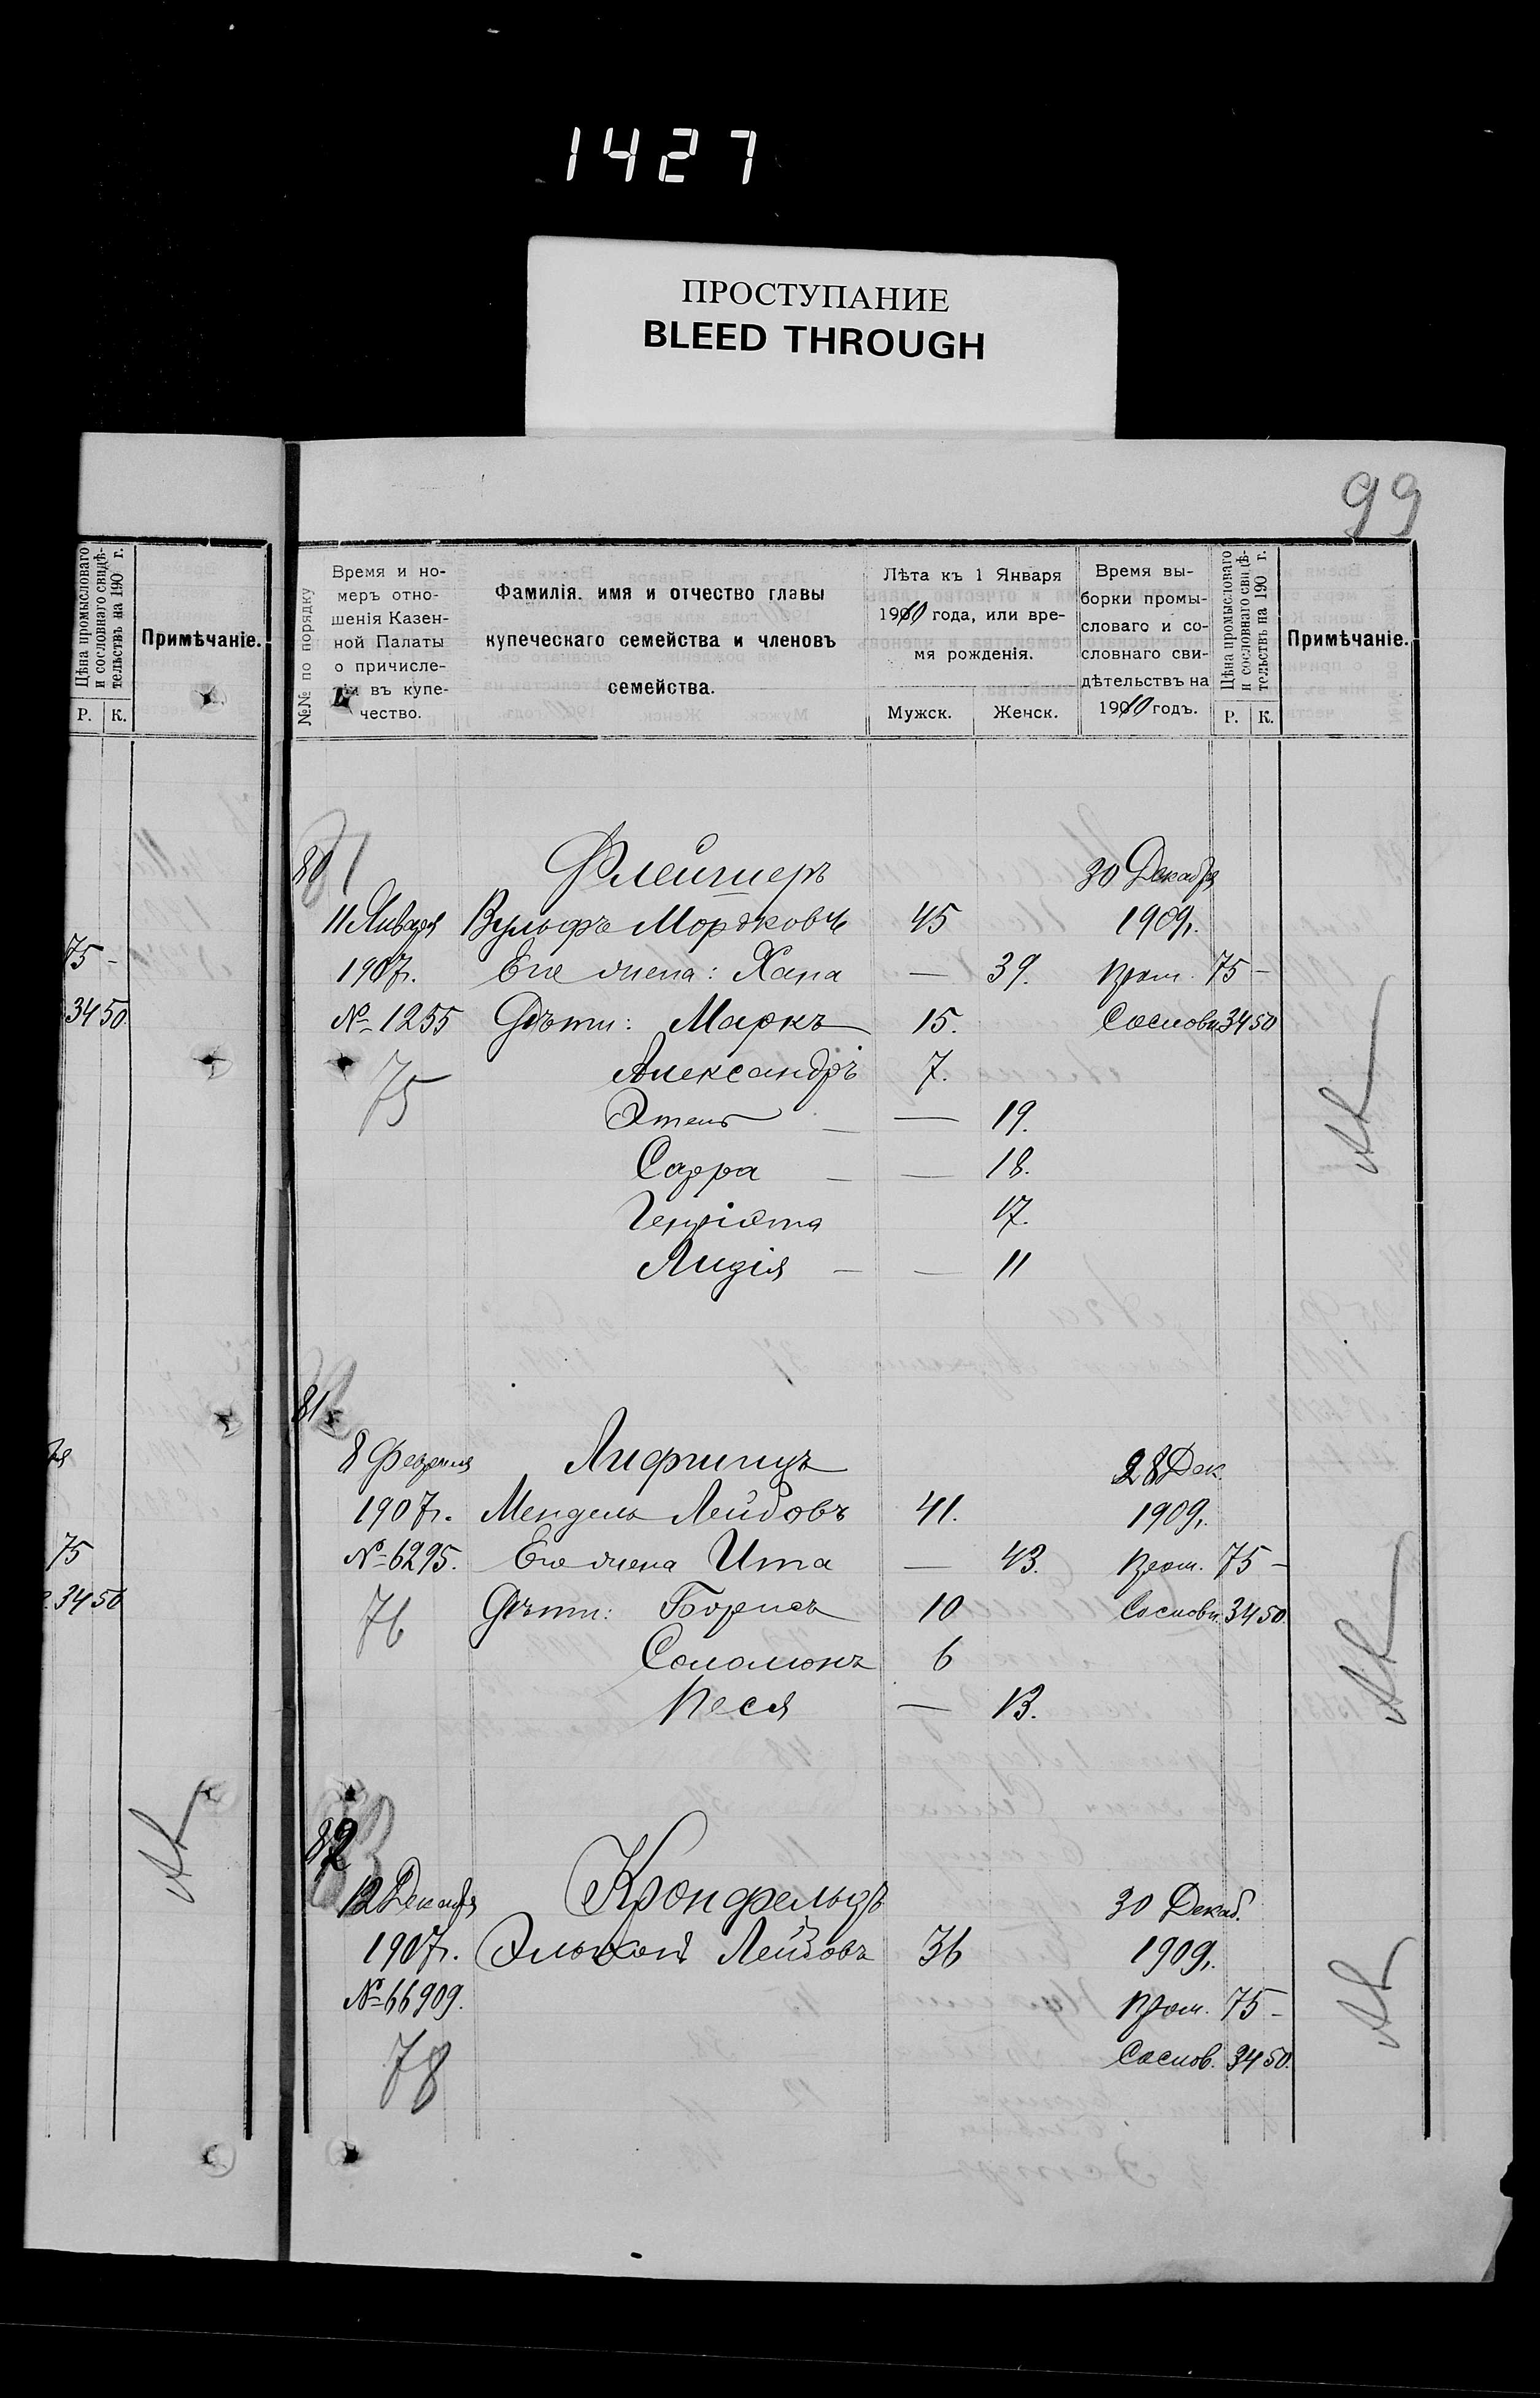 1427
ПРОСТУПАНИЕ
BLEED THROUGH
99
Цѣна промысловаго и сословнаго свидѣтельствъ на 190 г.
Р. К.
Примѣчаніе.
75 -
34 50
75
34 50
№№ по порядку
Время и но-
меръ отно-
шенія Казен-
ной Палаты
о причисле-
ніи въ купе-
чество.
Фамилія. имя и отчество главы
купеческаго семейства и членовъ
семейства.
Лѣта къ 1 Января
1910 года, или вре-
мя рожденія.
Мужск. Женск.
Время вы-
борки промы-
словаго и со-
словнаго сви-
дѣтельствъ на
1910 годъ.
Цѣна промысловаго
и сословнаго свидѣ-
тельствъ на 190 г.
Р. К.
Примѣчаніе.
80 Флейшеръ 30 Декабря
11 Января Вульфъ Мордковъ 45 1909г.
1907г. Его жена: Хана — 39. Пром. 75 -
№ 1255 Дѣти: Маркъ 15. Сословн. 34 50
75 Александръ 7.
— 19.
Сарра — — 18.
Генріэта 17.
Лидія — — 11
81
8 Февраля Лифшицъ 28 Дек.
1907г. Мендель Лейбовъ 41. 1909г.
№ 6295. Его жена Ита — 43. Пром. 75 -
76 Дѣти: Борисъ 10 Сословн. 34 50.
Соломонъ 6
Песя — 13.
82
12 Декабря Кронфельдъ 30 Декаб.
1907г. Лейбовъ 36 1909г.
№ 66909. Пром. 75 -
78 Сослов. 34 50.